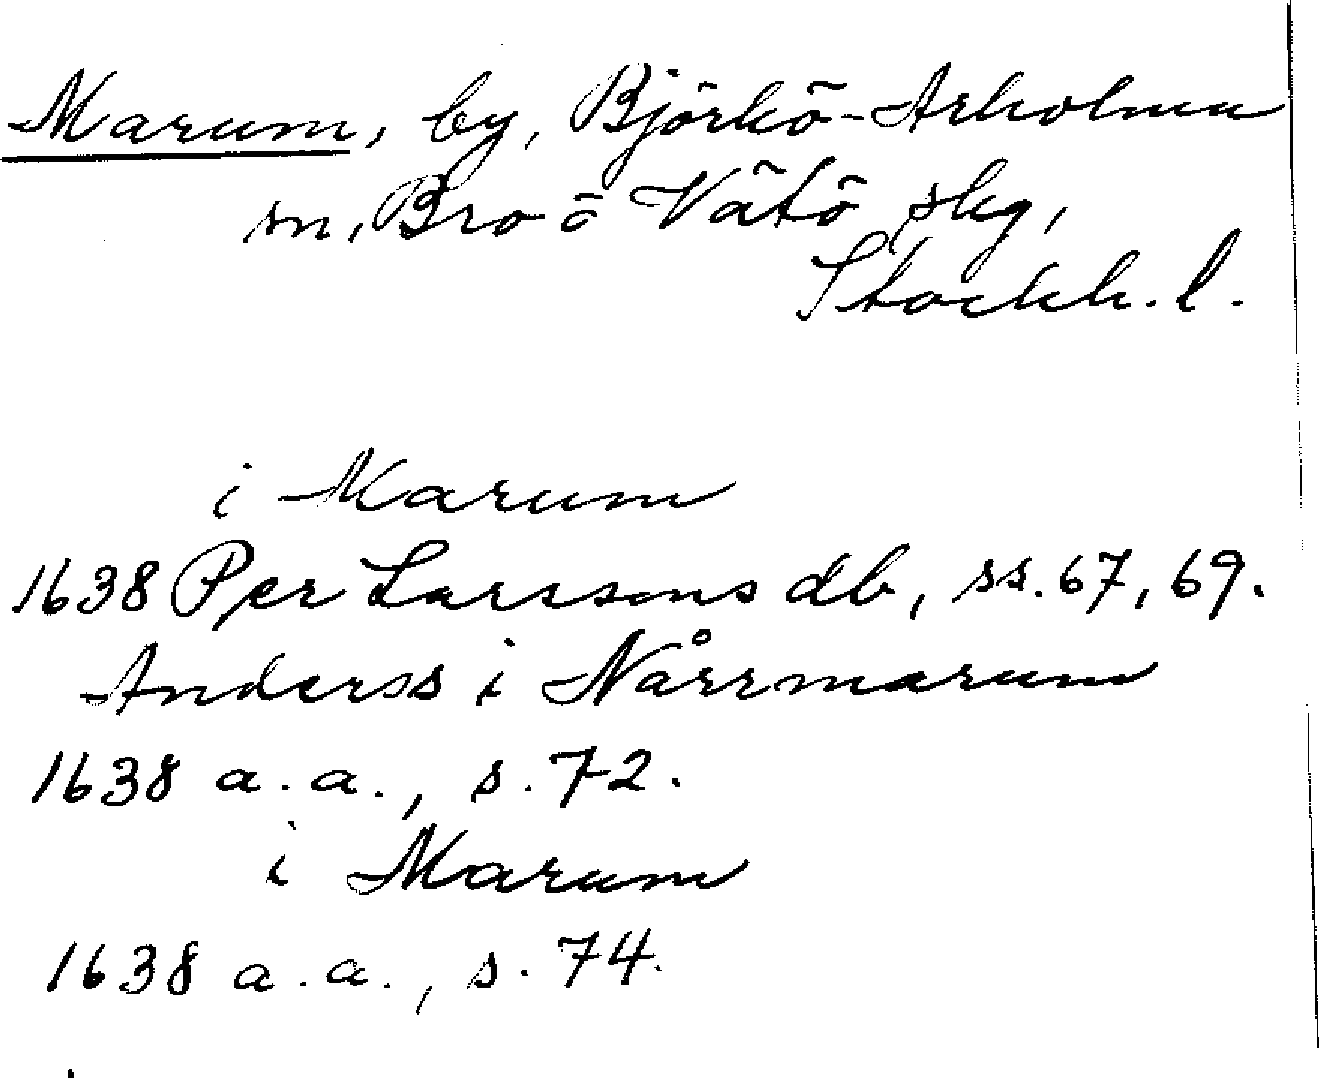 Marum, by, Björkö-Arholma
sn, Bro o Vätö skg,
Stockh. l.
i Marum
1638 Per Larssons db, ss. 67, 69.
Anderss i Nårrmarum
1638 a. a., s. 72.
i Marum
1638 a. a., s. 74.